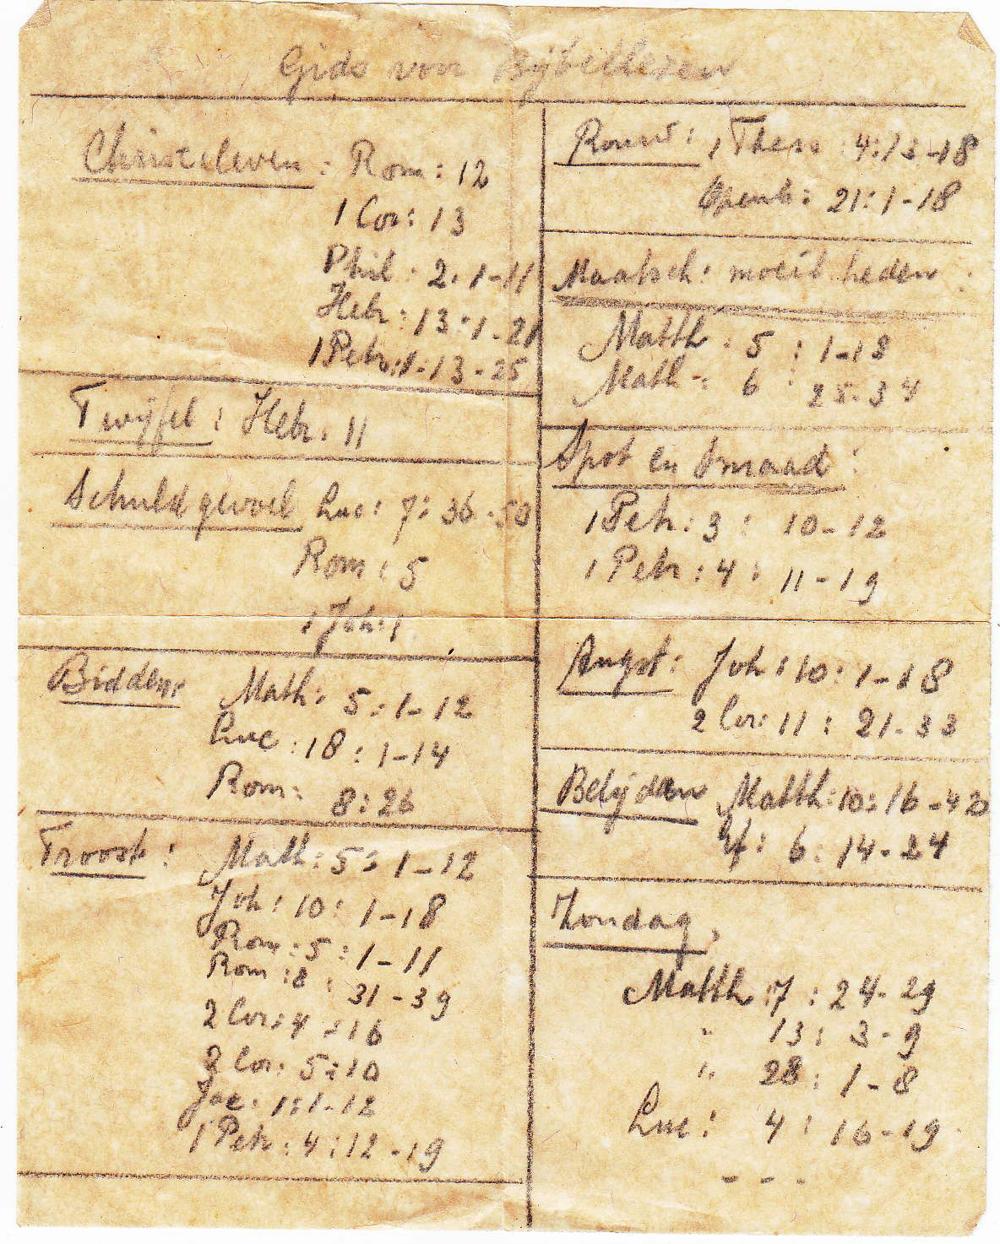 Gids voor Bijbellezen
Christeleven: Rom: 12
1 Cor: 13
Phil. 2. 1-11
Hebr: 13:1-21
1 Petr: 1-13-25
Twijfel: Hebr. 11
Schuldgevoel Luc: 7: 36-50
Rom: 5
1 Joh: 1
Bidden: Math: 5:1-12
Luc: 18:1-14
Rom: 8:26
Troost: Math: 5: 1-12
Joh: 10: 1-18
Rom: 5: 1-11
Rom: 8: 31-39
2 Cor: 4:16
2 Cor: 5:10
Jac: 1:1-12
1 Petr: 4:12-19
Rouw: 1 Thess 4:13-18
Openb: 21:1-18
Maatsch: moeilheden
Matth. 5: 1-18
Math: 6: 25-34
Spot en smaad:
1 Petr: 3: 10-12
1 Petr: 4: 11-19
Angst: Joh: 10: 1-18
2 Cor: 11: 21-33
Belijden Matth: 10:16-42
Ef: 6: 14-24
Zondag,
Matth 7: 24-29
" 13: 3-9
" 28: 1-8
Luc: 4: 16-19
- - -